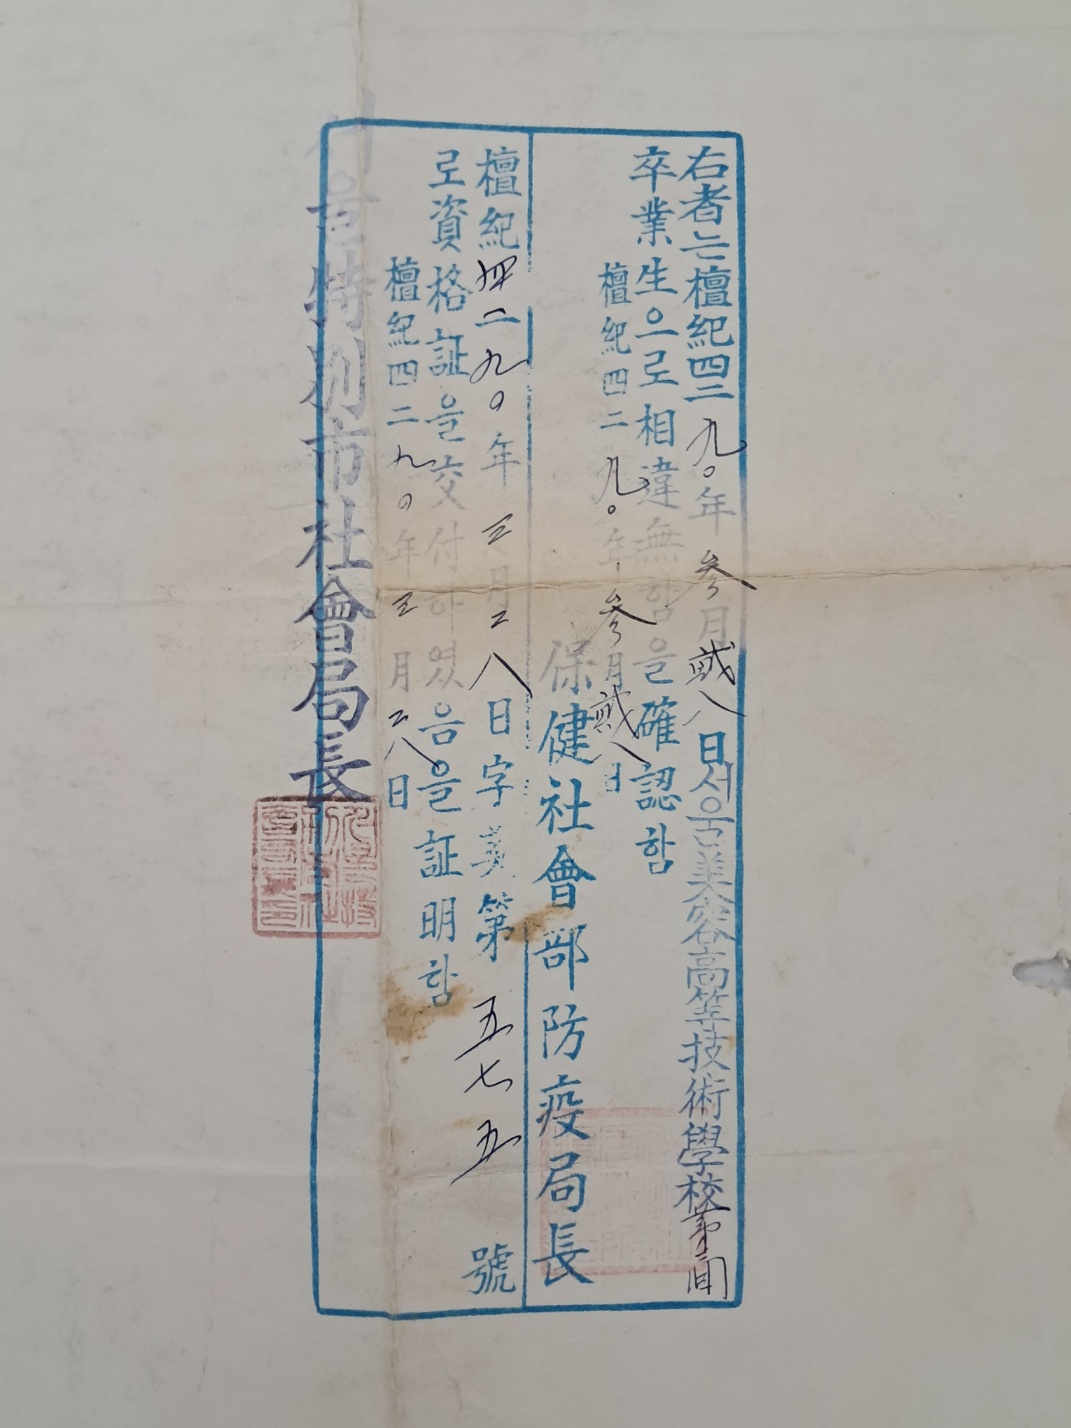 右者는檀紀四二九〇年 参月 貮八日서울고美容高等技術學校第 回
卒業生으로相違無함을確認함
檀紀四二九〇年 参月貮八日
保健社會部防疫局長
檀紀四二九〇年 三月二八日字 第 五七五 號
로資格証을交付하였음을証明함
檀紀四二九〇年三月二八日
서울特別市社會局長